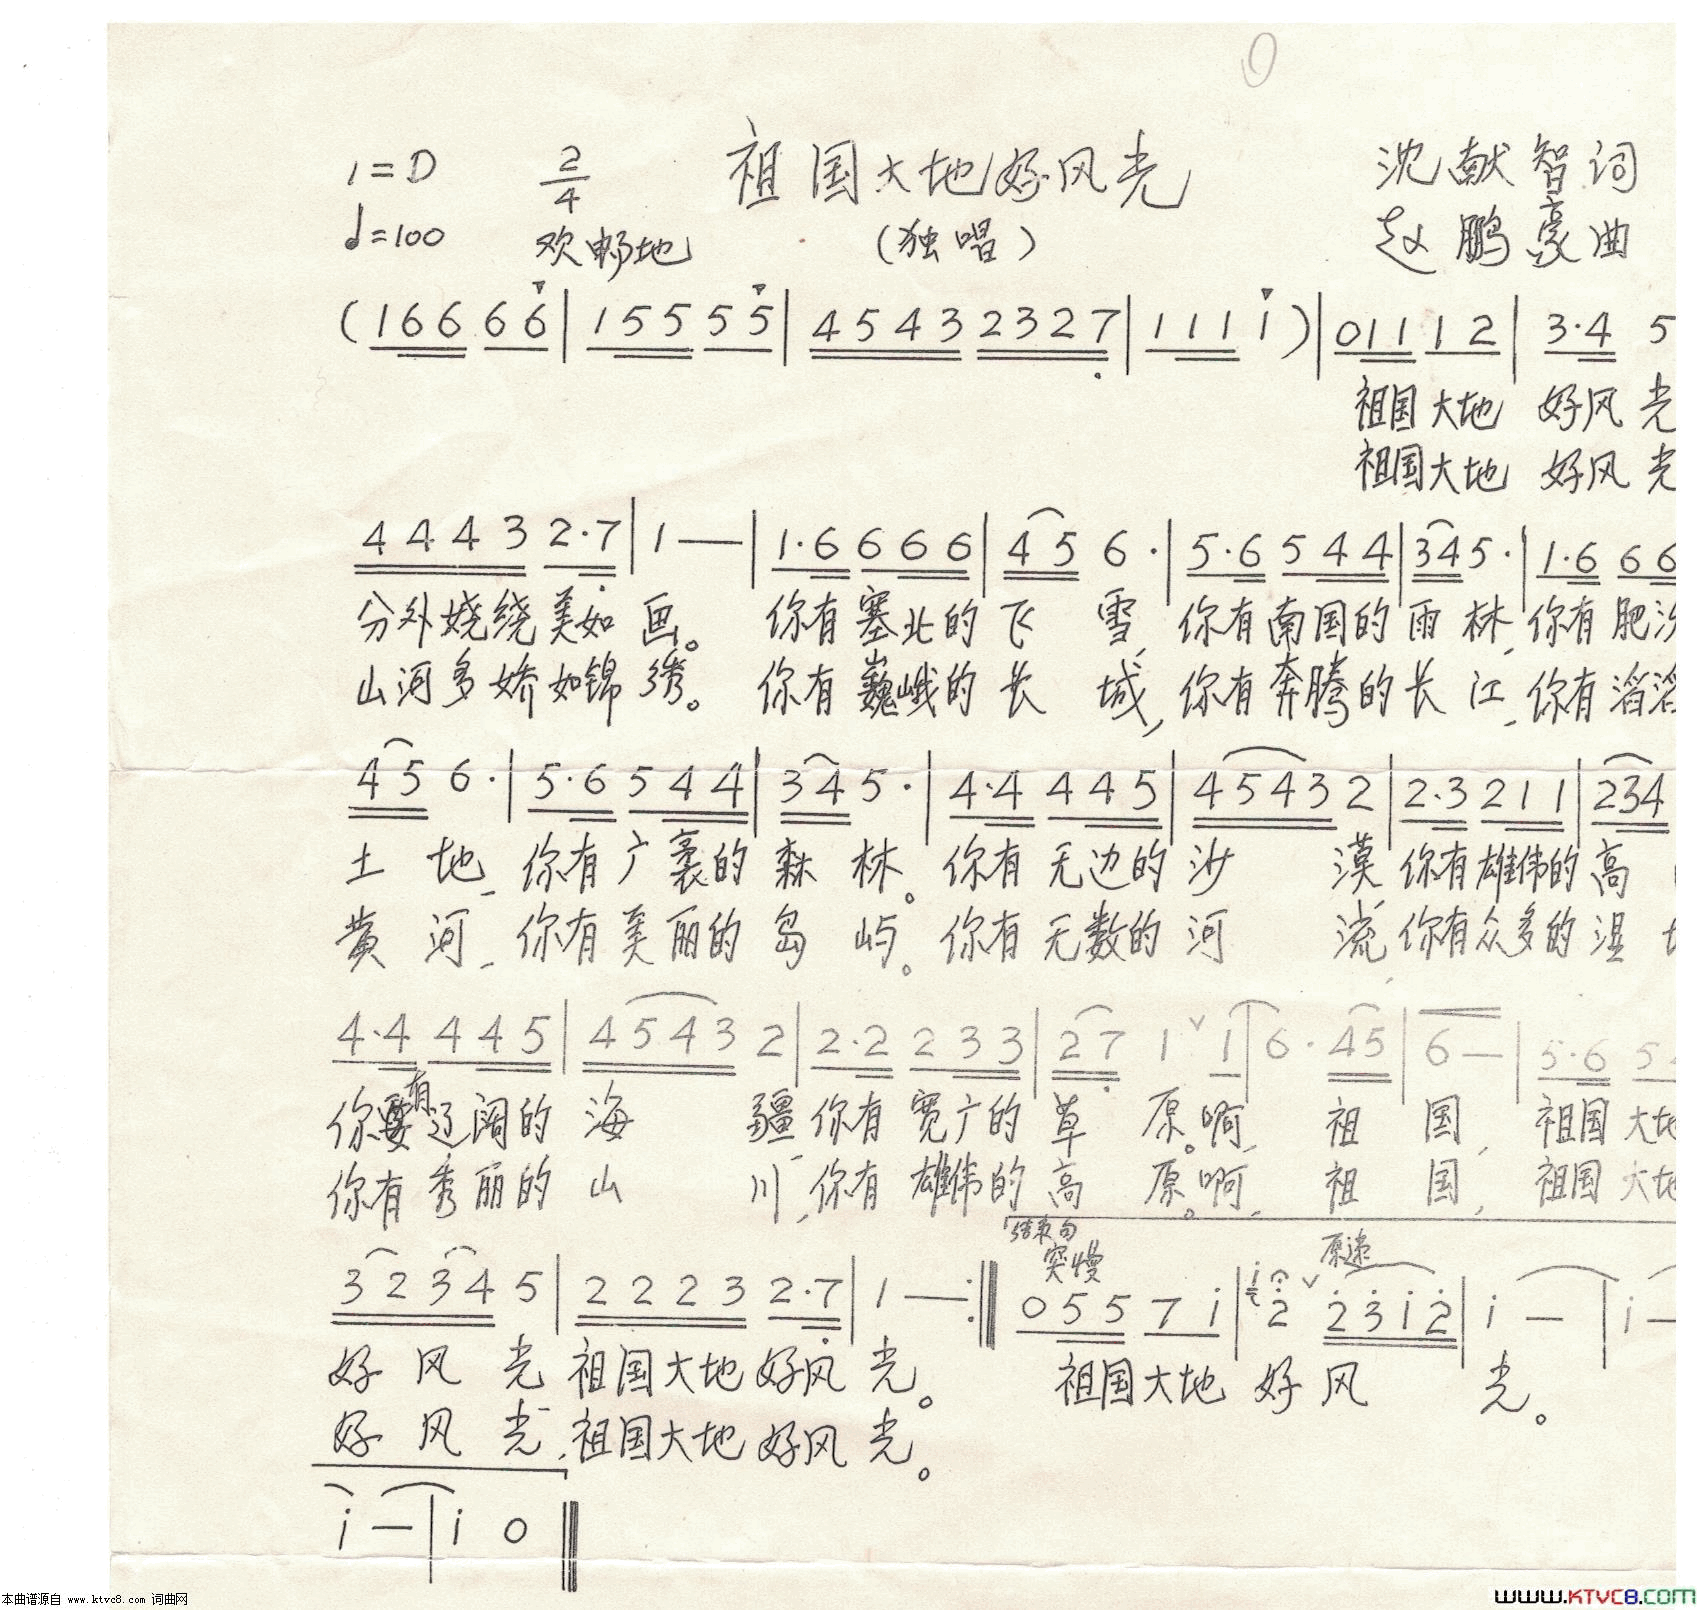 1=D 2/4 祖国大地好风光 沈献智词
♩=100 欢畅地 (独唱) 赵鹏豪曲
(166 66|155 55|4543 2327|111 i)|011 12|3·4 5
祖国大地 好风光
祖国大地 好风光
4443 2·7|1—|1·6 666|45 6·|5·6 544|34 5·|1·6 66
分外娆绕美如画。 你有塞北的飞雪,你有南国的雨林,你有肥沃
山河多娇如锦绣。 你有巍峨的长城,你有奔腾的长江,你有滔滔
45 6·|5·6 544|34 5·|4·4 445|4543 2|2·3 211|234
土地,你有广袤的森林。你有无边的沙漠,你有雄伟的高
黄河,你有美丽的岛屿。你有无数的河流,你有众多的湿
4·4 445|4543 2|2·2 233|27 1 ˅1|6· 45|6—|5·6 5
你有辽阔的海疆,你有宽广的草原。啊,祖国,祖国大地
你有秀丽的山川,你有雄伟的高原。啊,祖国,祖国大地
结束句
突慢 原速
3234 5|2223 2·7|1—:‖055 7i|2˅ 23i2|i—|i—
好风光 祖国大地好风光。 祖国大地好风光。
好风光,祖国大地好风光。
i—|i 0‖
本曲谱源自 www.ktvc8.com 词曲网
WWW.KTVC8.COM